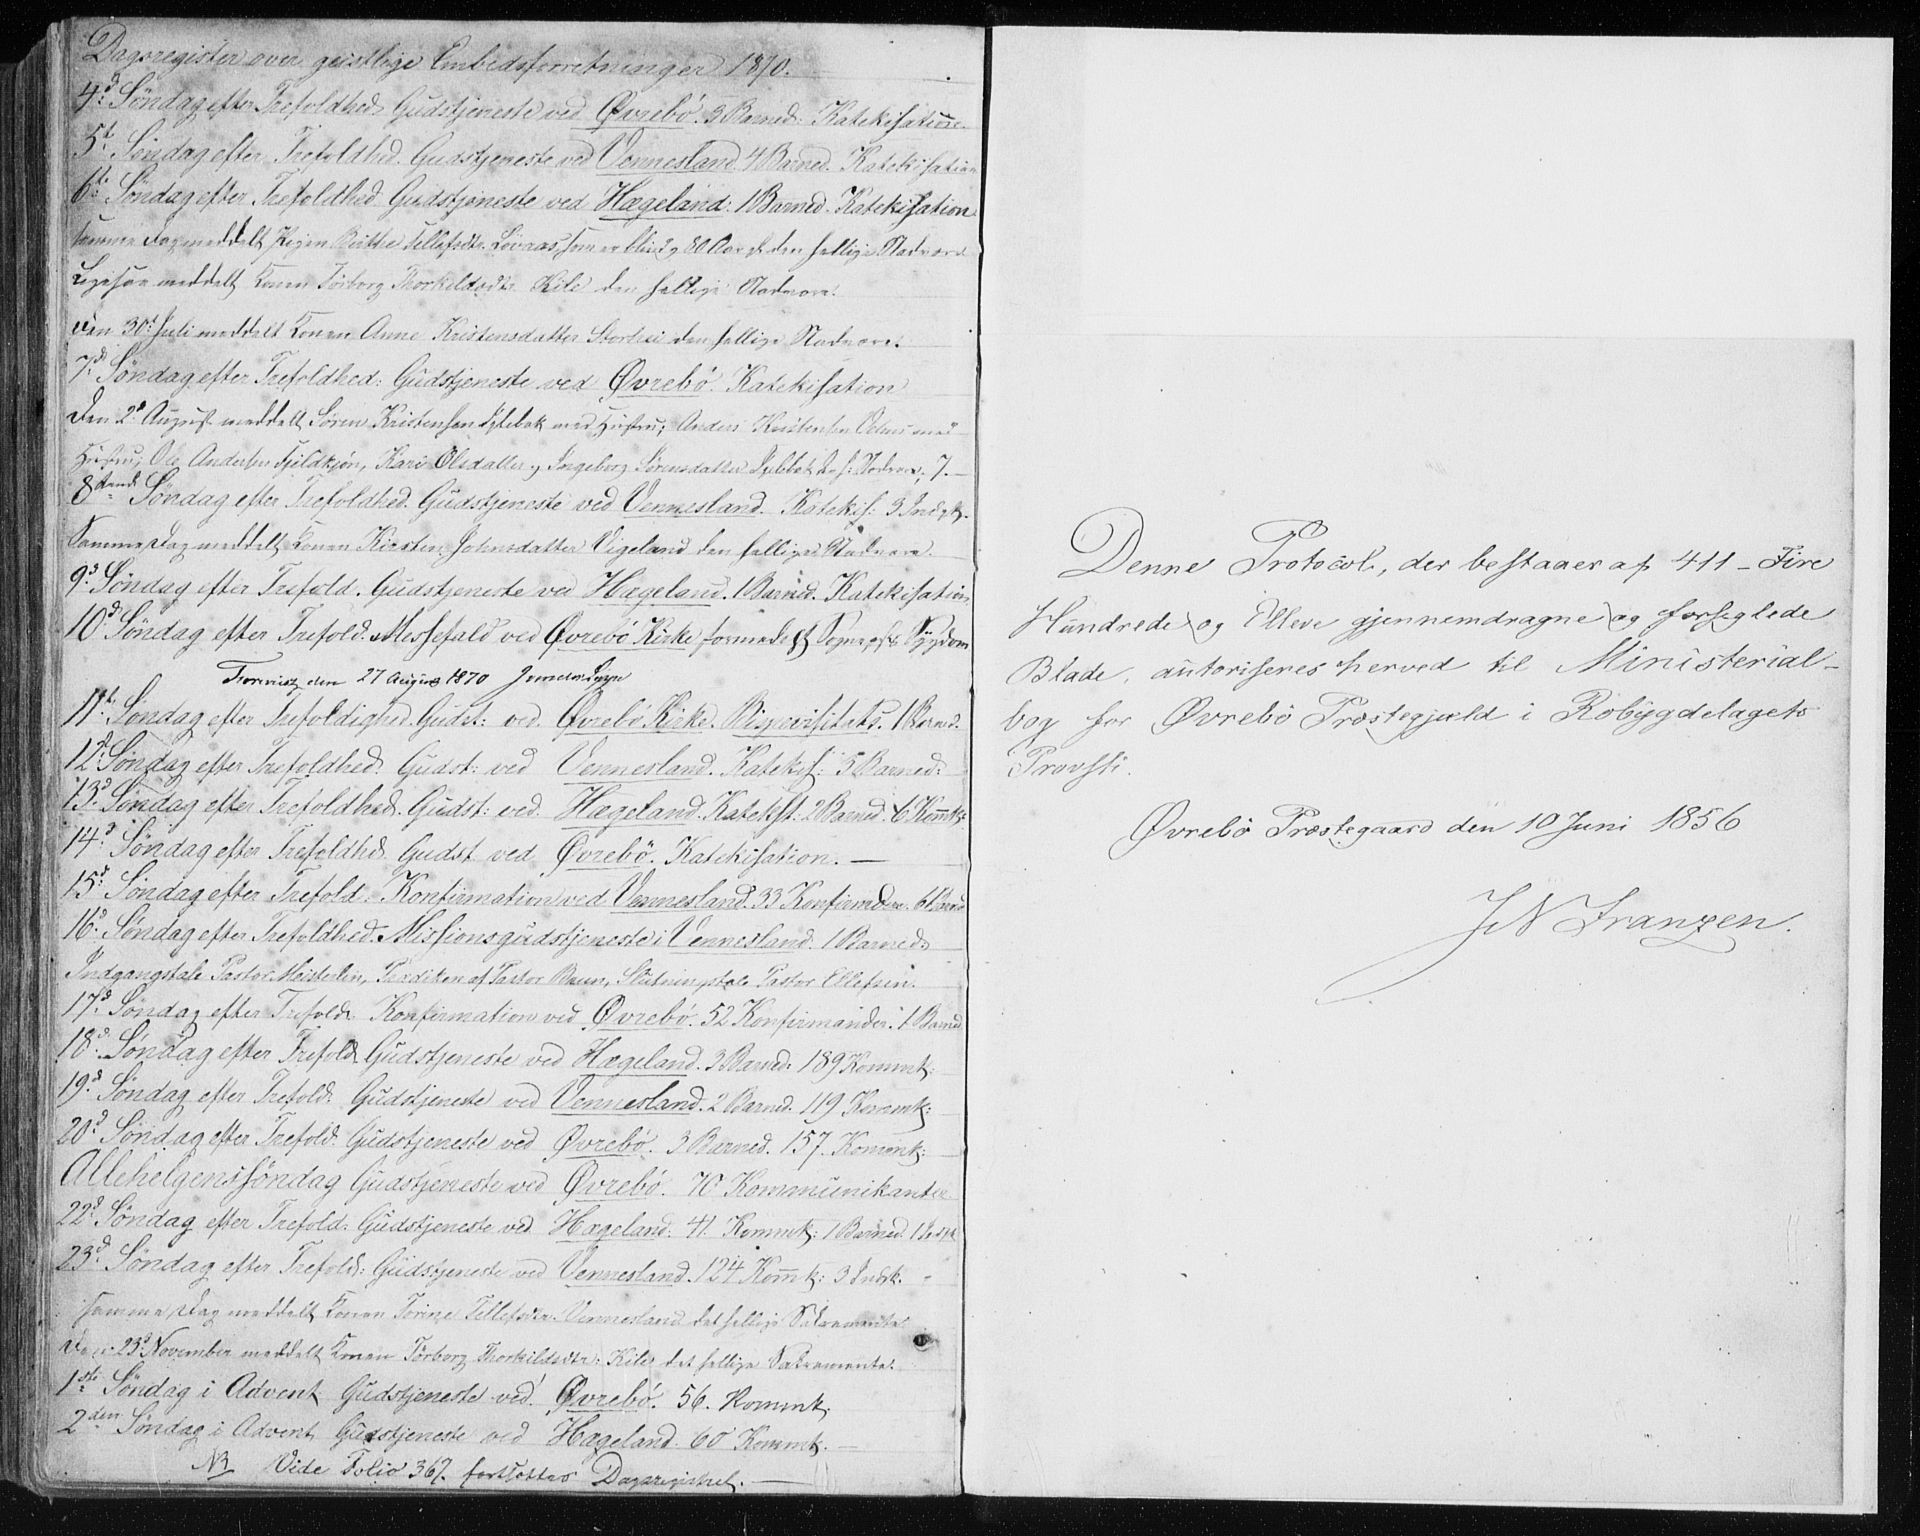 Dagsregister over geistlige Embedsforretninger 1870.
4d Søndag efter Trefoldhed Gudstjeneste ved Øvrebö. 3 Barned: Katekisation.
5t Søndag efter Trefoldhed. Gudstjeneste ved Vennesland. 4 Barned. Katekisation
6te Søndag efter Trefoldhed Gudstjeneste ved Hægeland: 1 Barned. Katekisation
samme Dag meddelt Pigen Birthe Tellefsdtr. som er blind og 80 Aar gl. den hellige Nadvere
Ligesaa meddelt Konen Torborg Thorkildsdtr Kile den hellige Nadvere.
den 30t Juli meddelt Konen Anne Kristensdatter den hellige Nadvere.
7d Søndag efter Trefoldhed: Gudstjeneste ved Øvrebö. Katekisation
Den 2d August meddelt Søren Kristensen med Hustru; Anders Kristensen med
Hustru, Ole Andersen Fjeldkjøn, Kari Olsdatter og Ingeborg Sørensdatter d. h: Nadvere; 7.
8 Søndag efter Trefoldhed. Gudstjeneste ved Vennesland. Katekis: 3 Indgk.
Samme Dag meddelt Konen Kirsten Johnsdatter Vigeland den hellige Nadvere.
9d Søndag efter Trefold. Gudstjeneste ved Hægeland. 1 Barned. Katekisation
10d Søndag efter Trefold. Messefald ved Øvrebö Kirke formedelst Sognepr: Sygdom
den 27 August 1870
11te Søndag efter Trefoldighed. Gudst: ved. Øvrebö Kirke. Bispevisitats. 1 Barned.
12d Søndag efter Trefoldhed. Gudst: ved Vennesland. Katekis: 5 Barned:
13d Søndag efter Trefoldhed. Gudst: ved. Hægeland. Katekst. 2 Barned. 6 Kommk:
14d Søndag efter Trefoldhd. Gudst ved Øvrebö. Katekisation. —
15d Søndag efter Trefold. Konfirmation ved Vennesland. 33 Konfirmder. 6 Barned
16d Søndag efter Trefoldhed. Missionsgudstjeneste i Vennesland. 1 Barned
Indgangstale Pastor Meisterlin, Prædiken af Pastor Bruun, Slutningstale Pastor Ellefsen.
17d Søndag efter Trefold: Konfirmation ved Øvrebö. 52 Konfirmander. 1 Barned
18d Søndag efter Trefold Gudstjeneste ved Hægeland. 3 Barned. 189 Kommk.
19d Søndag efter Trefold: Gudstjeneste ved Vennesland. 2 Barned. 119 Kommk:
20d Søndag efter Trefold. Gudstjeneste ved Øvrebö. 3 Barned. 157. Kommk:
Allehelgenssøndag Gudstjeneste ved Øvrebö. 70 Kommunikanter
22d Søndag efter Trefold: Gudstjeneste ved Hægeland: 41 Kommk: 1 Barned. 1 Indgk
23d Søndag efter Trefold: Gudstjeneste ved Vennesland. 124 Komk: 3 Indk.
samme Dag meddelt Konen Torine Tellefsdtr. Vennesland det hellige Sakramente.
Den 23d November meddelt Konen Torborg Thorkildsdtr: Kile det hellige Sakramente.
1ste Søndag i Advent Gudstjeneste ved Øvrebö. 56. Kommk.
2den Søndag i Advent Gudstjeneste ved Hægeland. 60 Kommk. —
NB Vide Folio 367. fortsættes Dagsregistret. —
Denne Protocol, der bestaaer af 411 – Fire
Hundrede og Elleve gjennemdragne og forseglede
Blade, autoriseres herved til Ministerial-
bog for Øvrebö Præstegjæld i Robygdelagets
Provsti.
Øvrebö Præstegaard den 10 Juni 1856
JN Franzen.